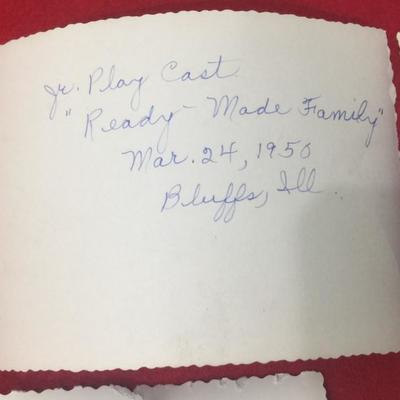 Jr. Play Cast
"Ready-Made Family"
Mar. 24, 1950
Bluffs, Ill.